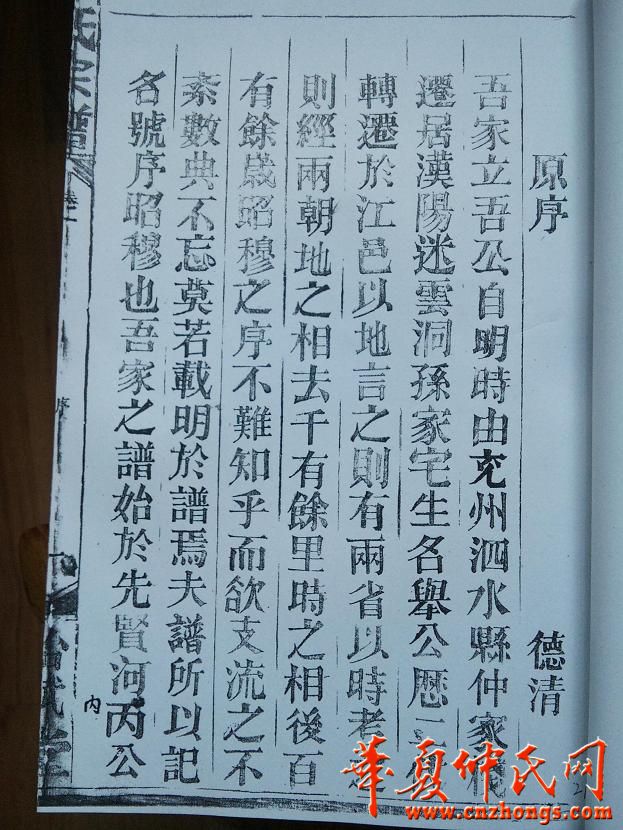 原序 德清
吾家立吾公自明時由兖州泗水縣仲家
遷居漢陽迷雲洞孫家宅生名舉公歷
轉遷於江邑以地言之則有兩省以時考
則經兩朝地之相去千有餘里時之相後百
有餘歲昭穆之序不難知乎而欲支流之不
紊數典不忘莫若載明於譜焉夫譜所以記
名號序昭穆也吾家之譜始於先賢河丙公
内
氏宗譜
序
華夏仲氏网
www.cnzhongs.com